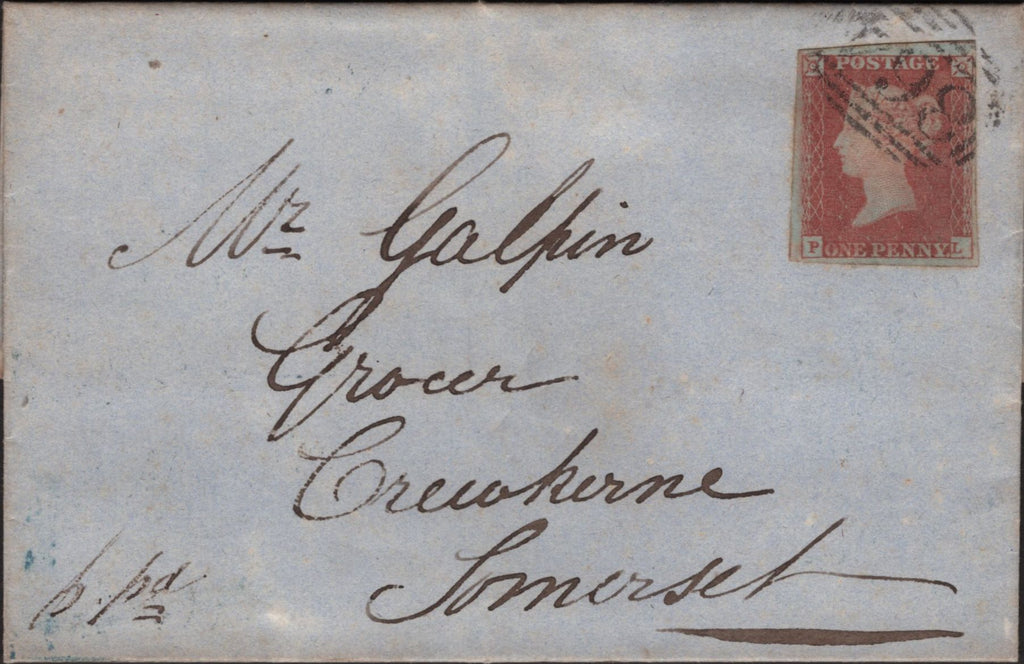 POSTAGE
P ONE PENNY L
Mr Galpin
Grocer
Crewkerne
Somerset
p. pd